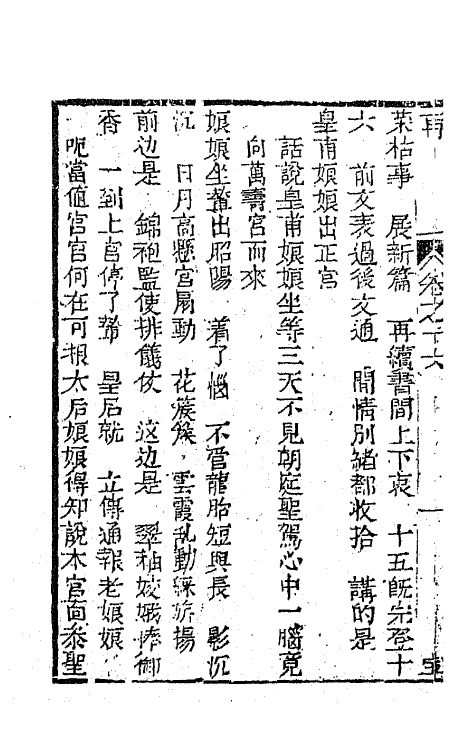 再　卷之十六　一
荣枯事　展新篇　再續書間上下哀　十五既完登十
六　前文表過後文通　閒情別緒都收拾　講的是
皇甫娘娘出正宮
話說皇甫娘娘坐等三天不見朝廷聖駕心中一腦竟
向萬壽宮而來
娘娘坐輦出昭陽　着了惱　不管龍胎短與長　影沉
沉　日月高懸宮扇動　花簇簇　雲霞乱動綵旂揚
前边是　錦袍監使排儀仗　这边是　翠袖嫦娥捧御
香　一到上宮停了輦　皇后就　立傳通報老娘娘
呪當值宮官何在可报太后娘娘得知說本宮面叅聖